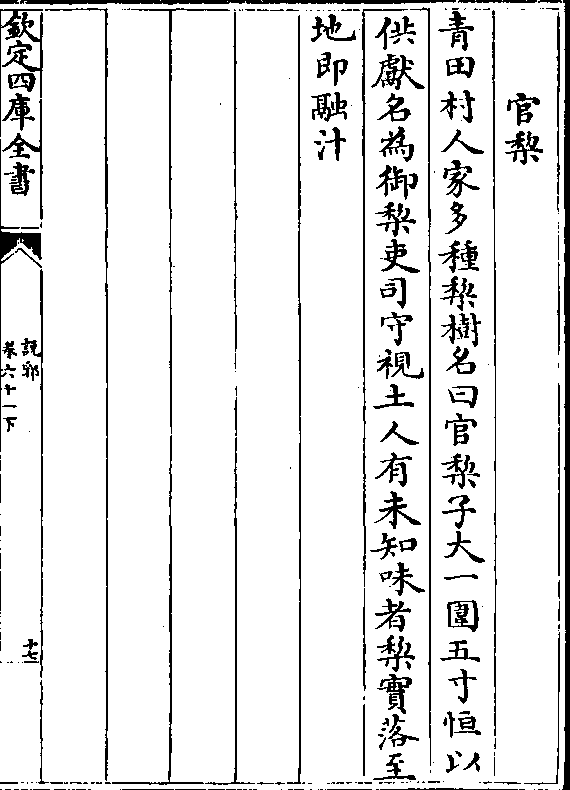 官棃
青田村人家多種棃樹名曰官棃子大一圍五寸恒以
供獻名為御棃吏司守視土人有未知味者棃實落至
地即融汁
欽定四庫全書
說郛
卷六十一下
十七